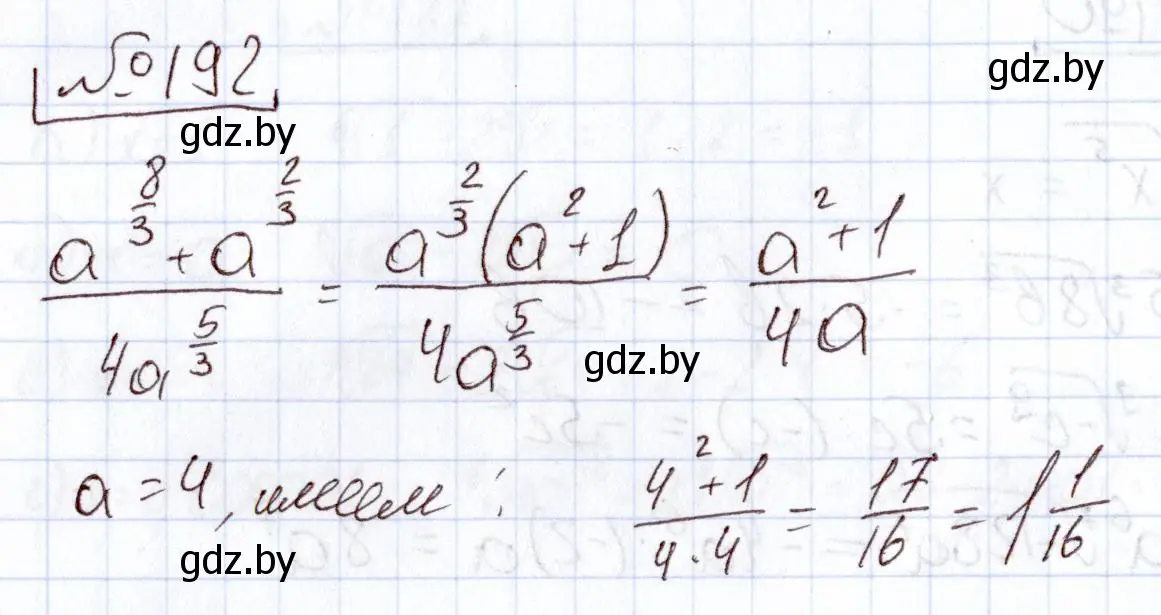 №192
gdz.by
gdz.by
(a^(8/3) + a^(2/3))/(4a^(5/3)) = (a^(2/3)(a²+1))/(4a^(5/3)) = (a²+1)/(4a)
gdz.by
a = 4, имеем: (4²+1)/(4·4) = 17/16 = 1 1/16
gdz.by